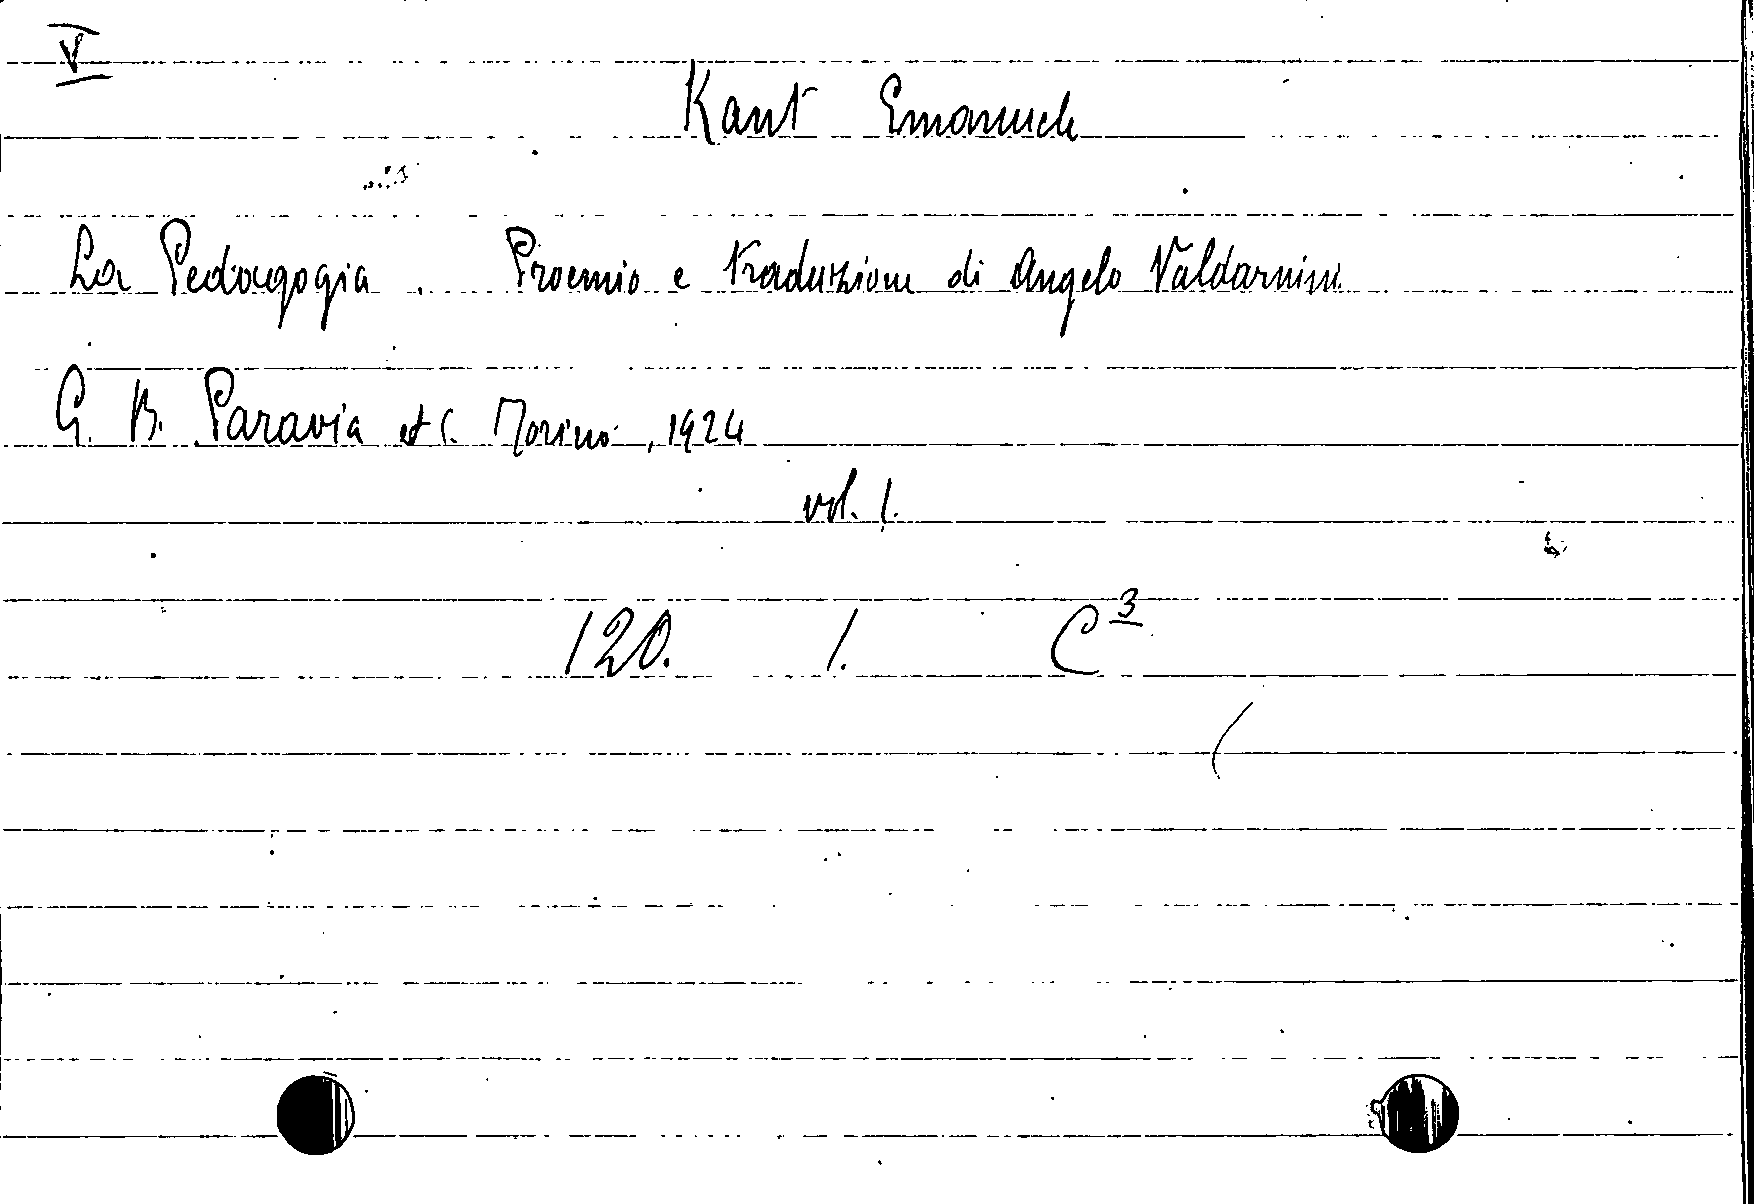 V
Kant Emanuele
La Pedagogia. Proemio e traduzione di Angelo Valdarnini
G. B. Paravia et C. Torino, 1924
vol. 1.
120. 1. C3